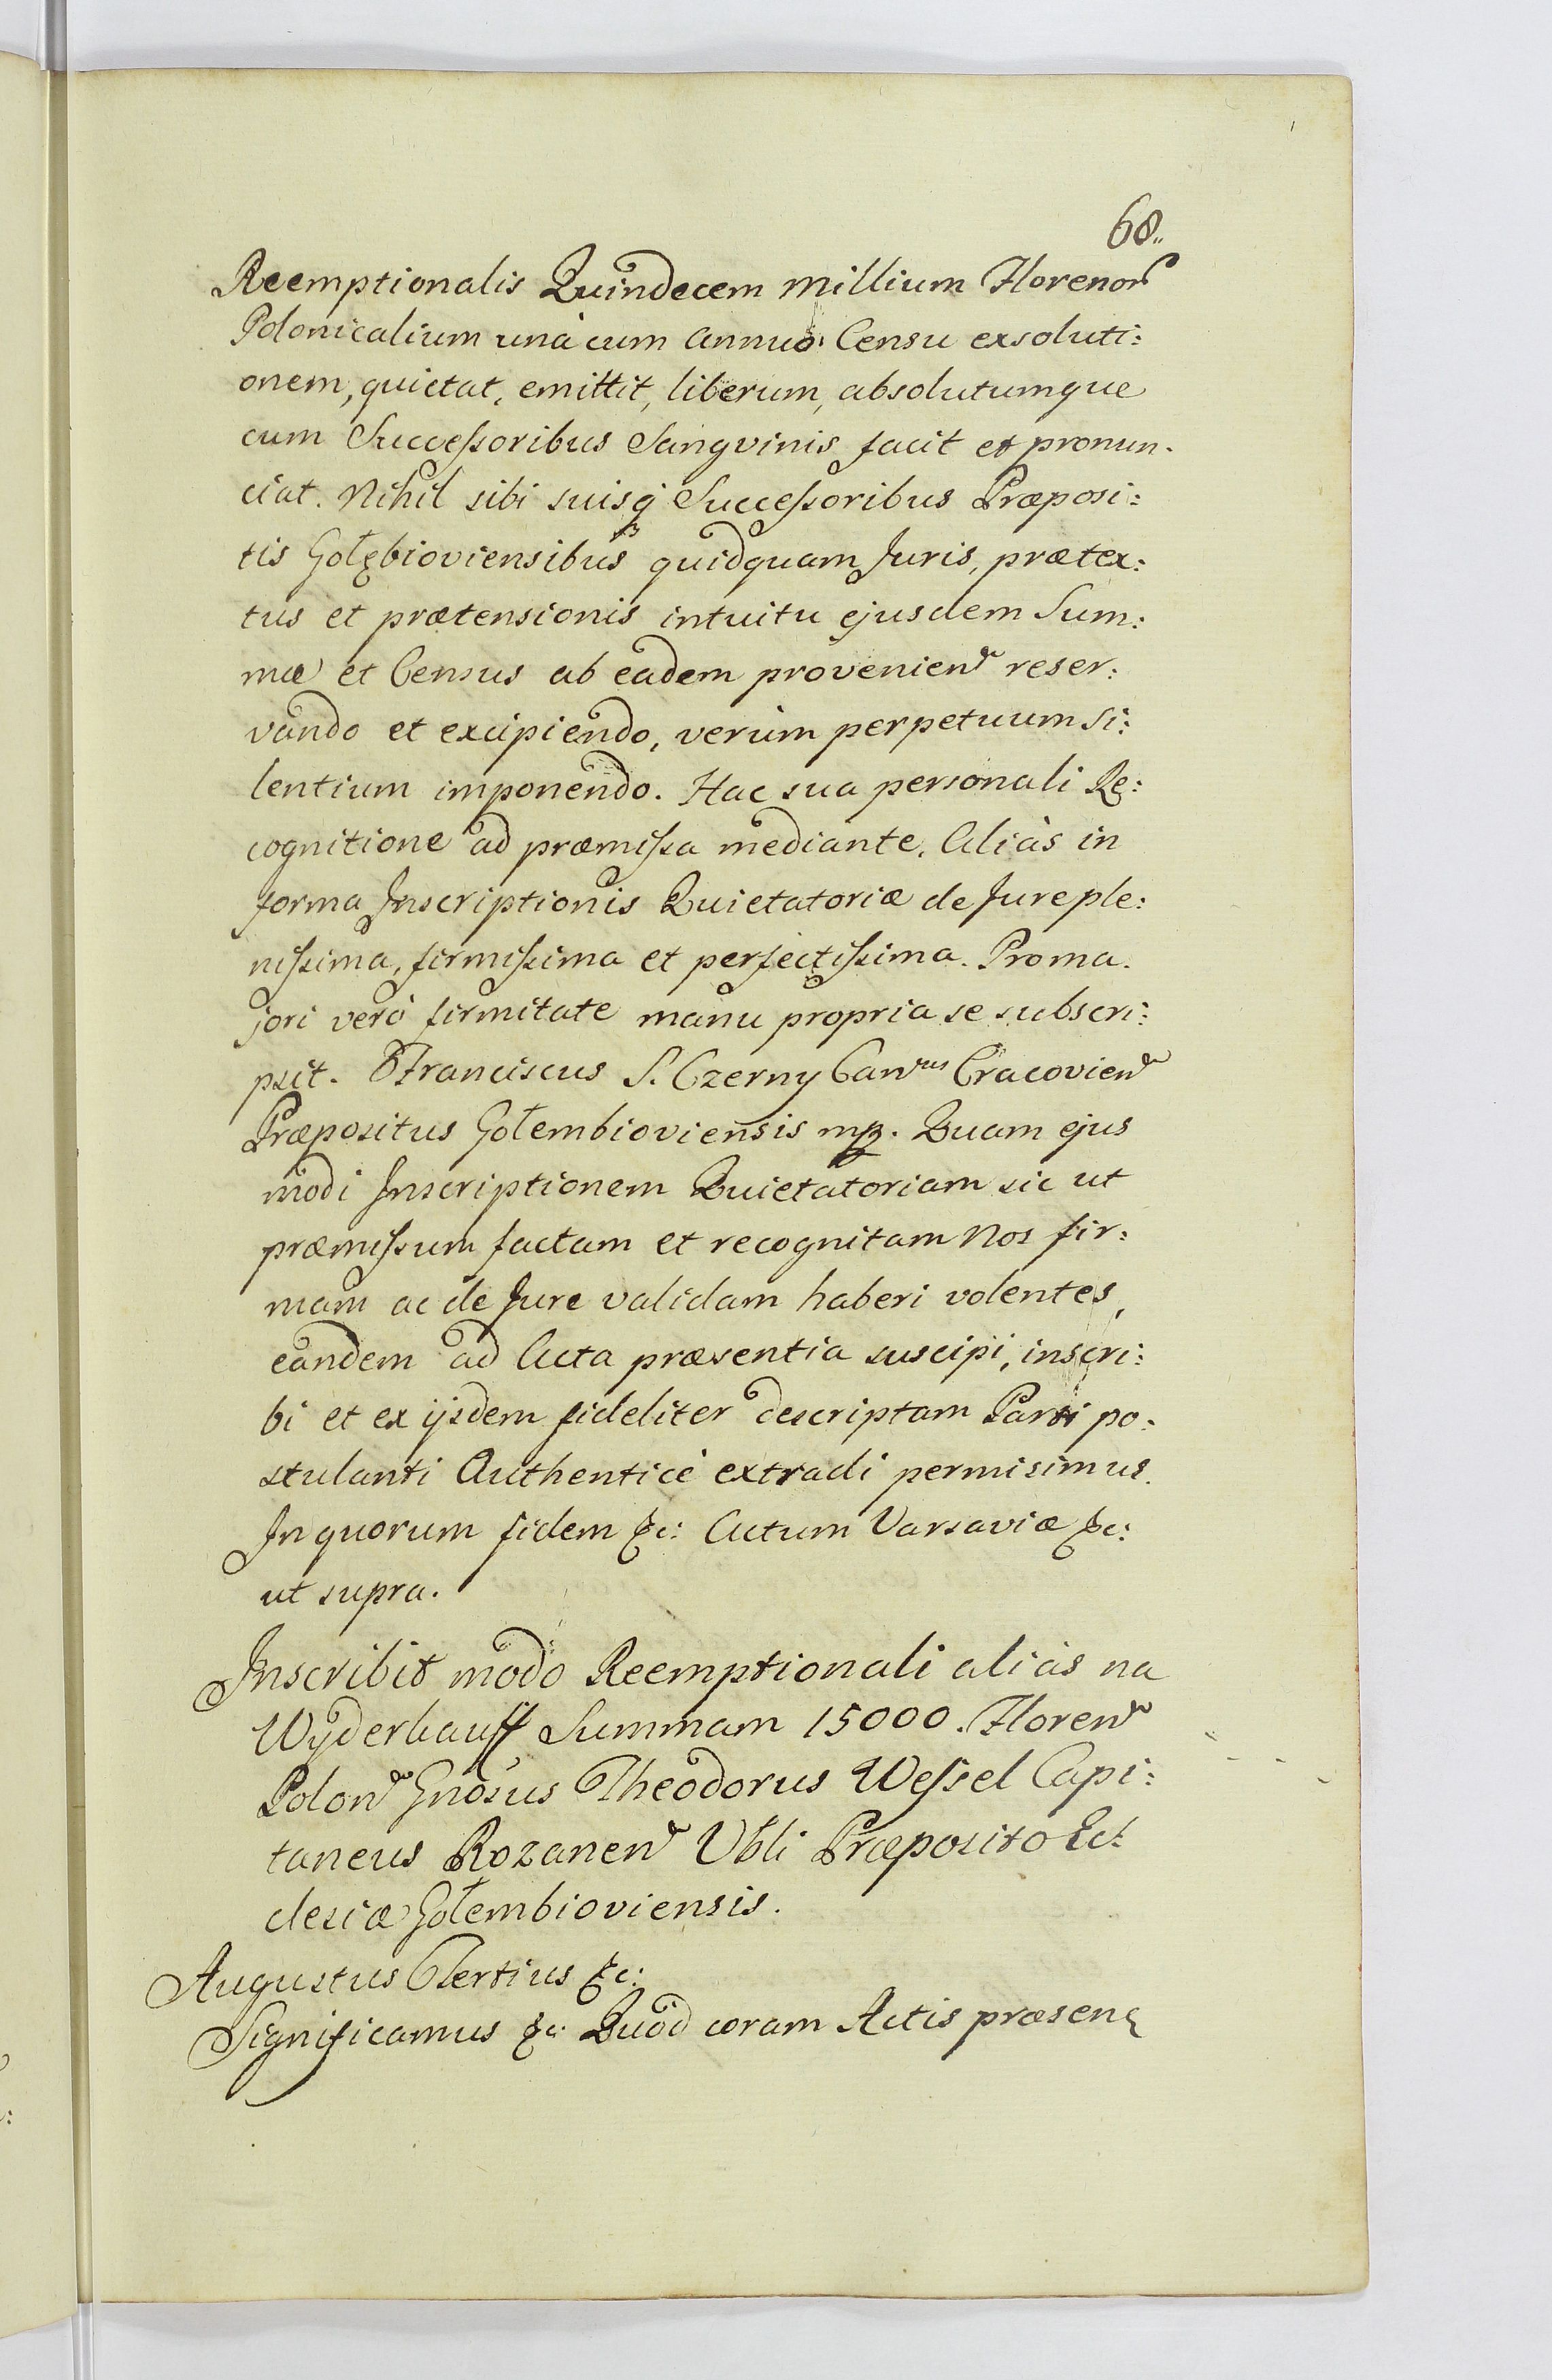 68..
Reemptionalis Quindecem Millium Florenor
Polonicalium unà cum annuo Censu exsoluti:
onem, quietat, emittit, liberum, absolutumque
cum Successoribus Sangvinis facit et pronun.
ciat. Nihil sibi suisq Successoribus Præposi:
tis Gołębioviensibus quidquam Juris, prætex:
tus et prætensionis intuitu ejusdem Sum:
mæ et Census ab eadem provenien reser:
vando et excipiendo, verùm perpetuum si:
lentium imponendo. Hac sua personali Re:
cognitione ad præmissa mediante. Aliàs in
forma Inscriptionis Quietatoriæ de Jure ple:
nissima, firmissima et perfectissima. Pro ma.
jori verò firmitate manu propria se subscri:
psit. Franciscus S. Czerny Can.us Cracovien
Præpositus Gołembioviensis mp. Quam ejus
modi Inscriptionem Quietatoriam sic ut
præmissum factam et recognitam Nos fir:
mam ac de Jure validam haberi volentes,
eandem ad Acta præsentia suscipi, inscri:
bi et ex ijsdem fideliter descriptam Parti po:
stulanti Authenticè extradi permisimus.
In quorum fidem &c: Actum Varsaviæ &c:
ut supra.
Inscribit modo Reemptionali aliàs na
Wyderhauff Summam 15000. Floren
Polon Gnosus Theodorus Wessel Capi:
taneus Rozanen Vbli Præposito Ec:
clesiæ Gołembioviensis.
Augustus Tertius &c:
Significamus &c: Quod coram Actis præsen